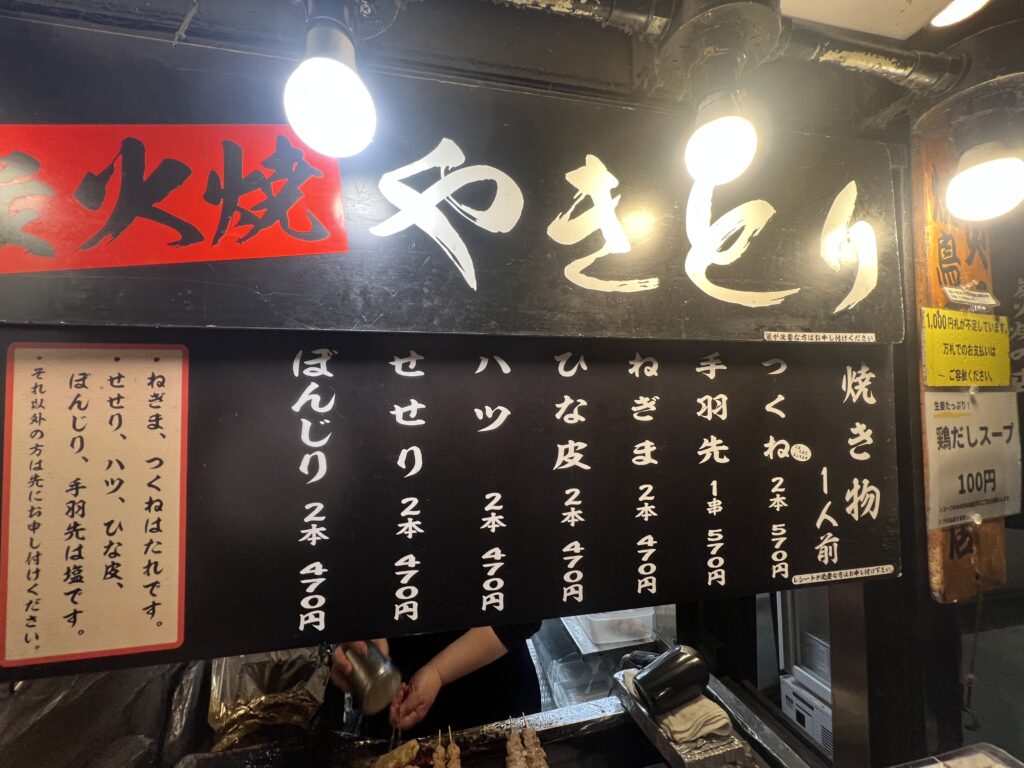 火焼
やきとり
袋が必要な方はお申し付けください
焼き物 1人前
つくね 2本 570円
手羽先 1串 570円
ねぎま 2本 470円
ひな皮 2本 470円
ハツ 2本 470円
せせり 2本 470円
ぼんじり 2本 470円
レシートが必要な方はお申し付け下さい。
・ねぎま、つくねはたれです。
・せせり、ハツ、ひな皮、
ぼんじり、手羽先は塩です。
・それ以外の方は先にお申し付けください。
1,000円札が不足しています。
万札でのお支払いは
ご容赦ください。
生姜たっぷり!
鶏だしスープ
100円